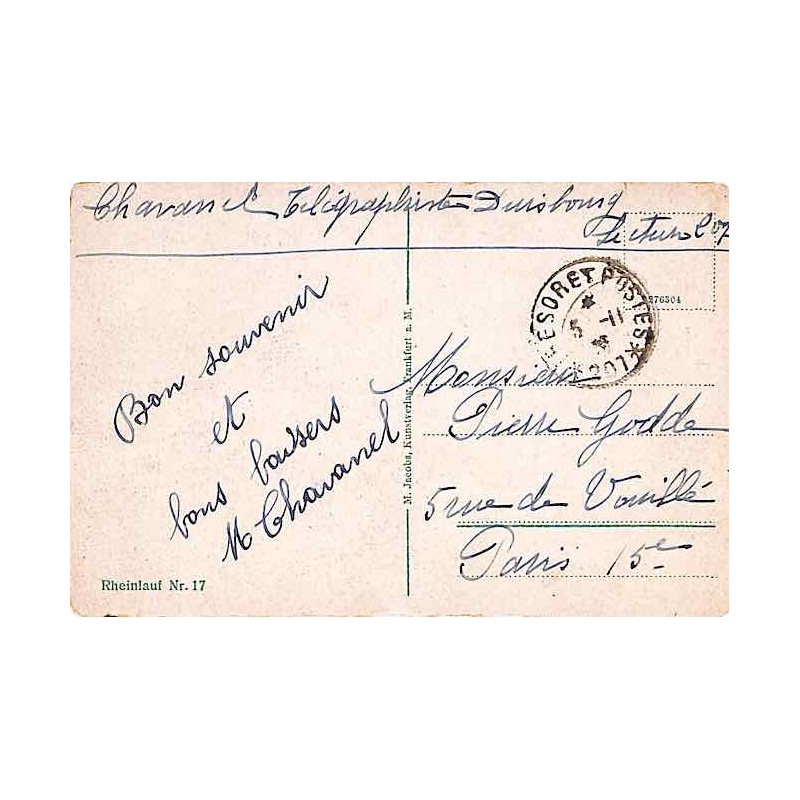 Chavanel Télégraphiste Duisbourg
Secteur 207
Bon souvenir
et
bons baisers
M Chavanel
Rheinlauf Nr. 17
M. Jacobs, Kunstverlag, Frankfurt a. M.
276304
TRESOR ET POSTES
5 -11
Monsieur
Pierre Godde
5 rue de Vouillé
Paris 15e